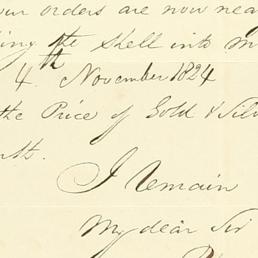 our orders are now nea
ing the Shell into m
4th November 1824
the Price of Gold & Silv
I remain
My dear Sir